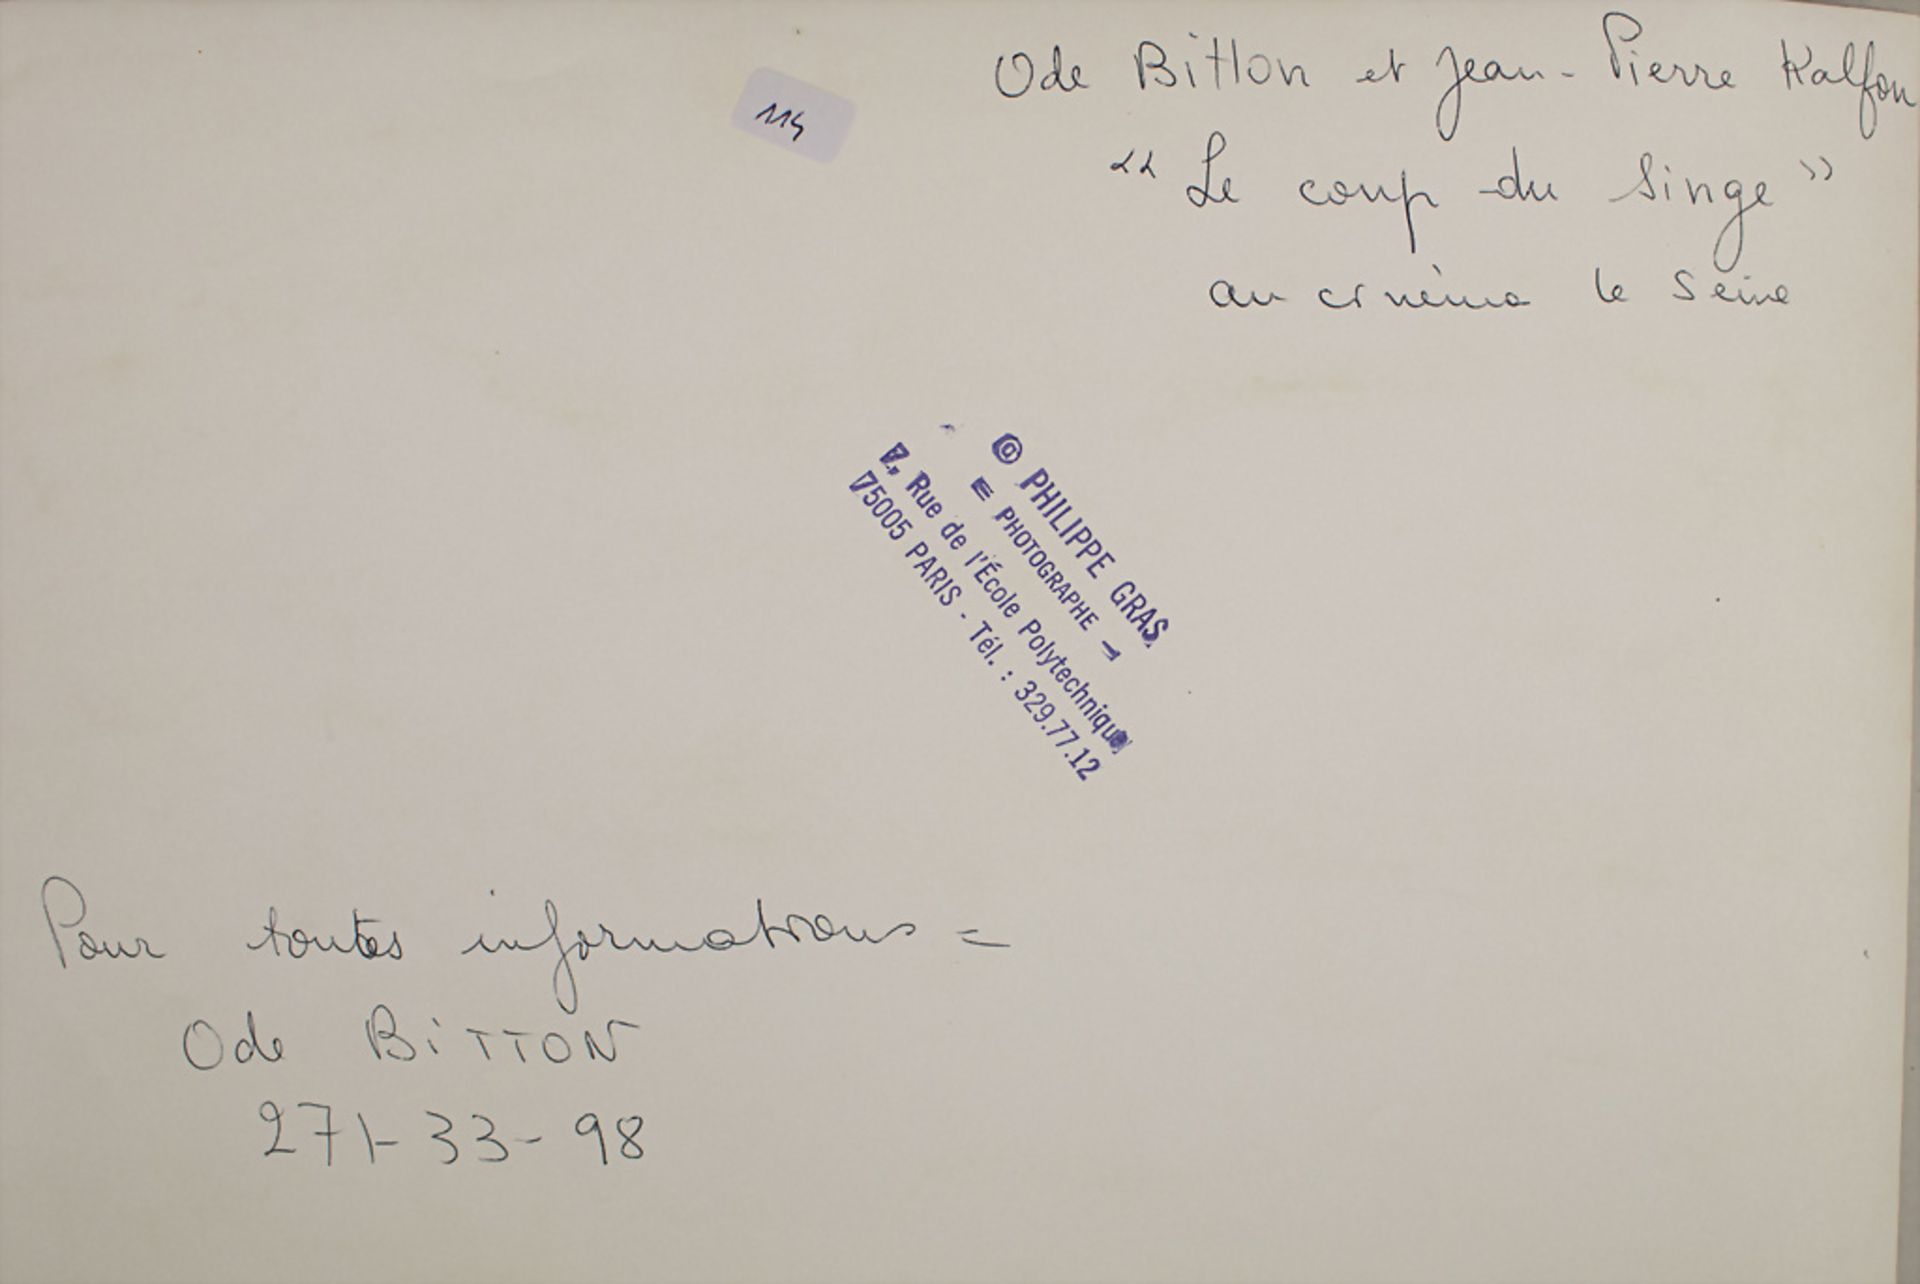 Ode Bitton et Jean-Pierre Kalfon
"Le coup du Singe"
au cinèma le Seine
114
© PHILIPPE GRAS
= PHOTOGRAPHE =
7, Rue de l'École Polytechnique
75005 PARIS - Tél. : 329.77.12
Pour toutes informations =
Ode BITTON
271-33-98